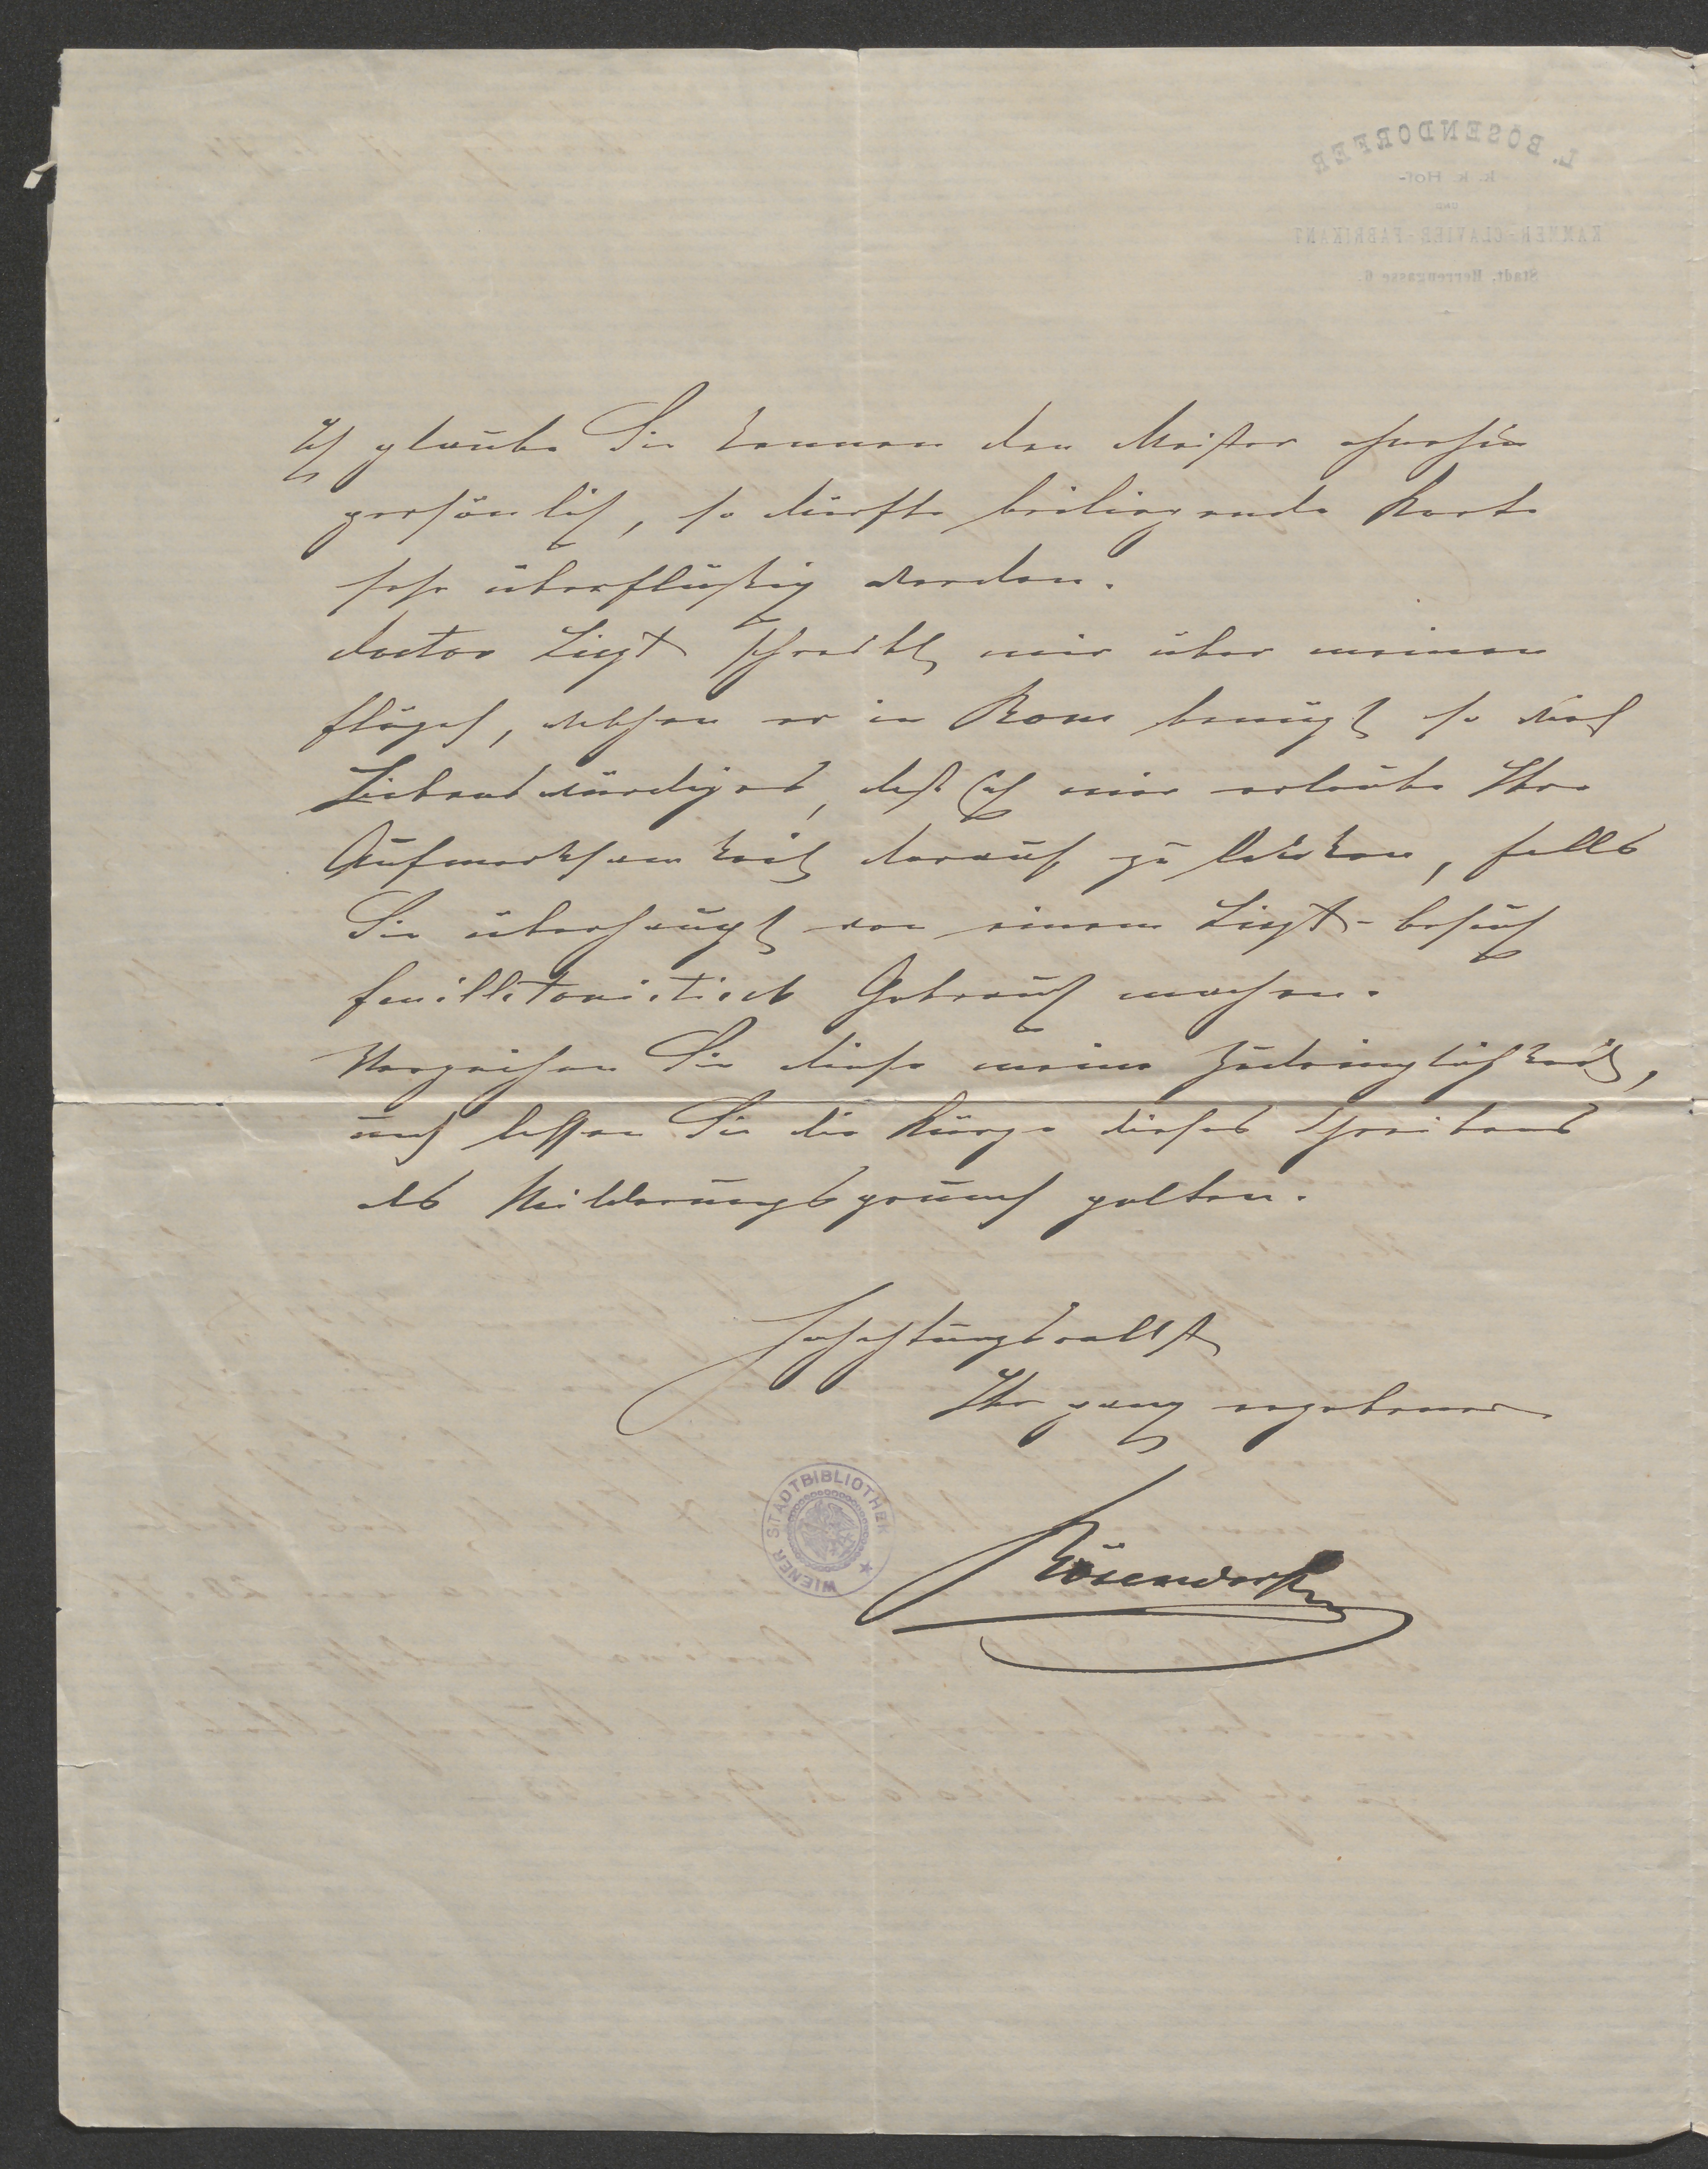 L. BÖSENDORFER
k. k. Hof-
UND
KAMMER-CLAVIER-FABRIKANT
Stadt, Herrengasse 6.
Ich glaube Sie kennen den Meister ohnehin
persönlich, so dürfte beiliegende Karte
sehr überflüssig werden.
Doctor Liszt schreibt mir über meinen
Flügel, welchen er in Rom benützt so viel
Liebenswürdiges, daß ich mir erlaube Ihre
Aufmerksamkeit darauf zu lenken, falls
Sie überhaupt von einem Liszt-besuch
feuilletonistisch Gebrauch machen.
Verzeihen Sie diese meine Zudringlichkeit,
und lassen Sie die Kürze dieses Schreibens
als Milderungsgrund gelten.
Hochachtungsvollst
Ihr ganz ergebener
Bösendorfer
WIENER STADTBIBLIOTHEK